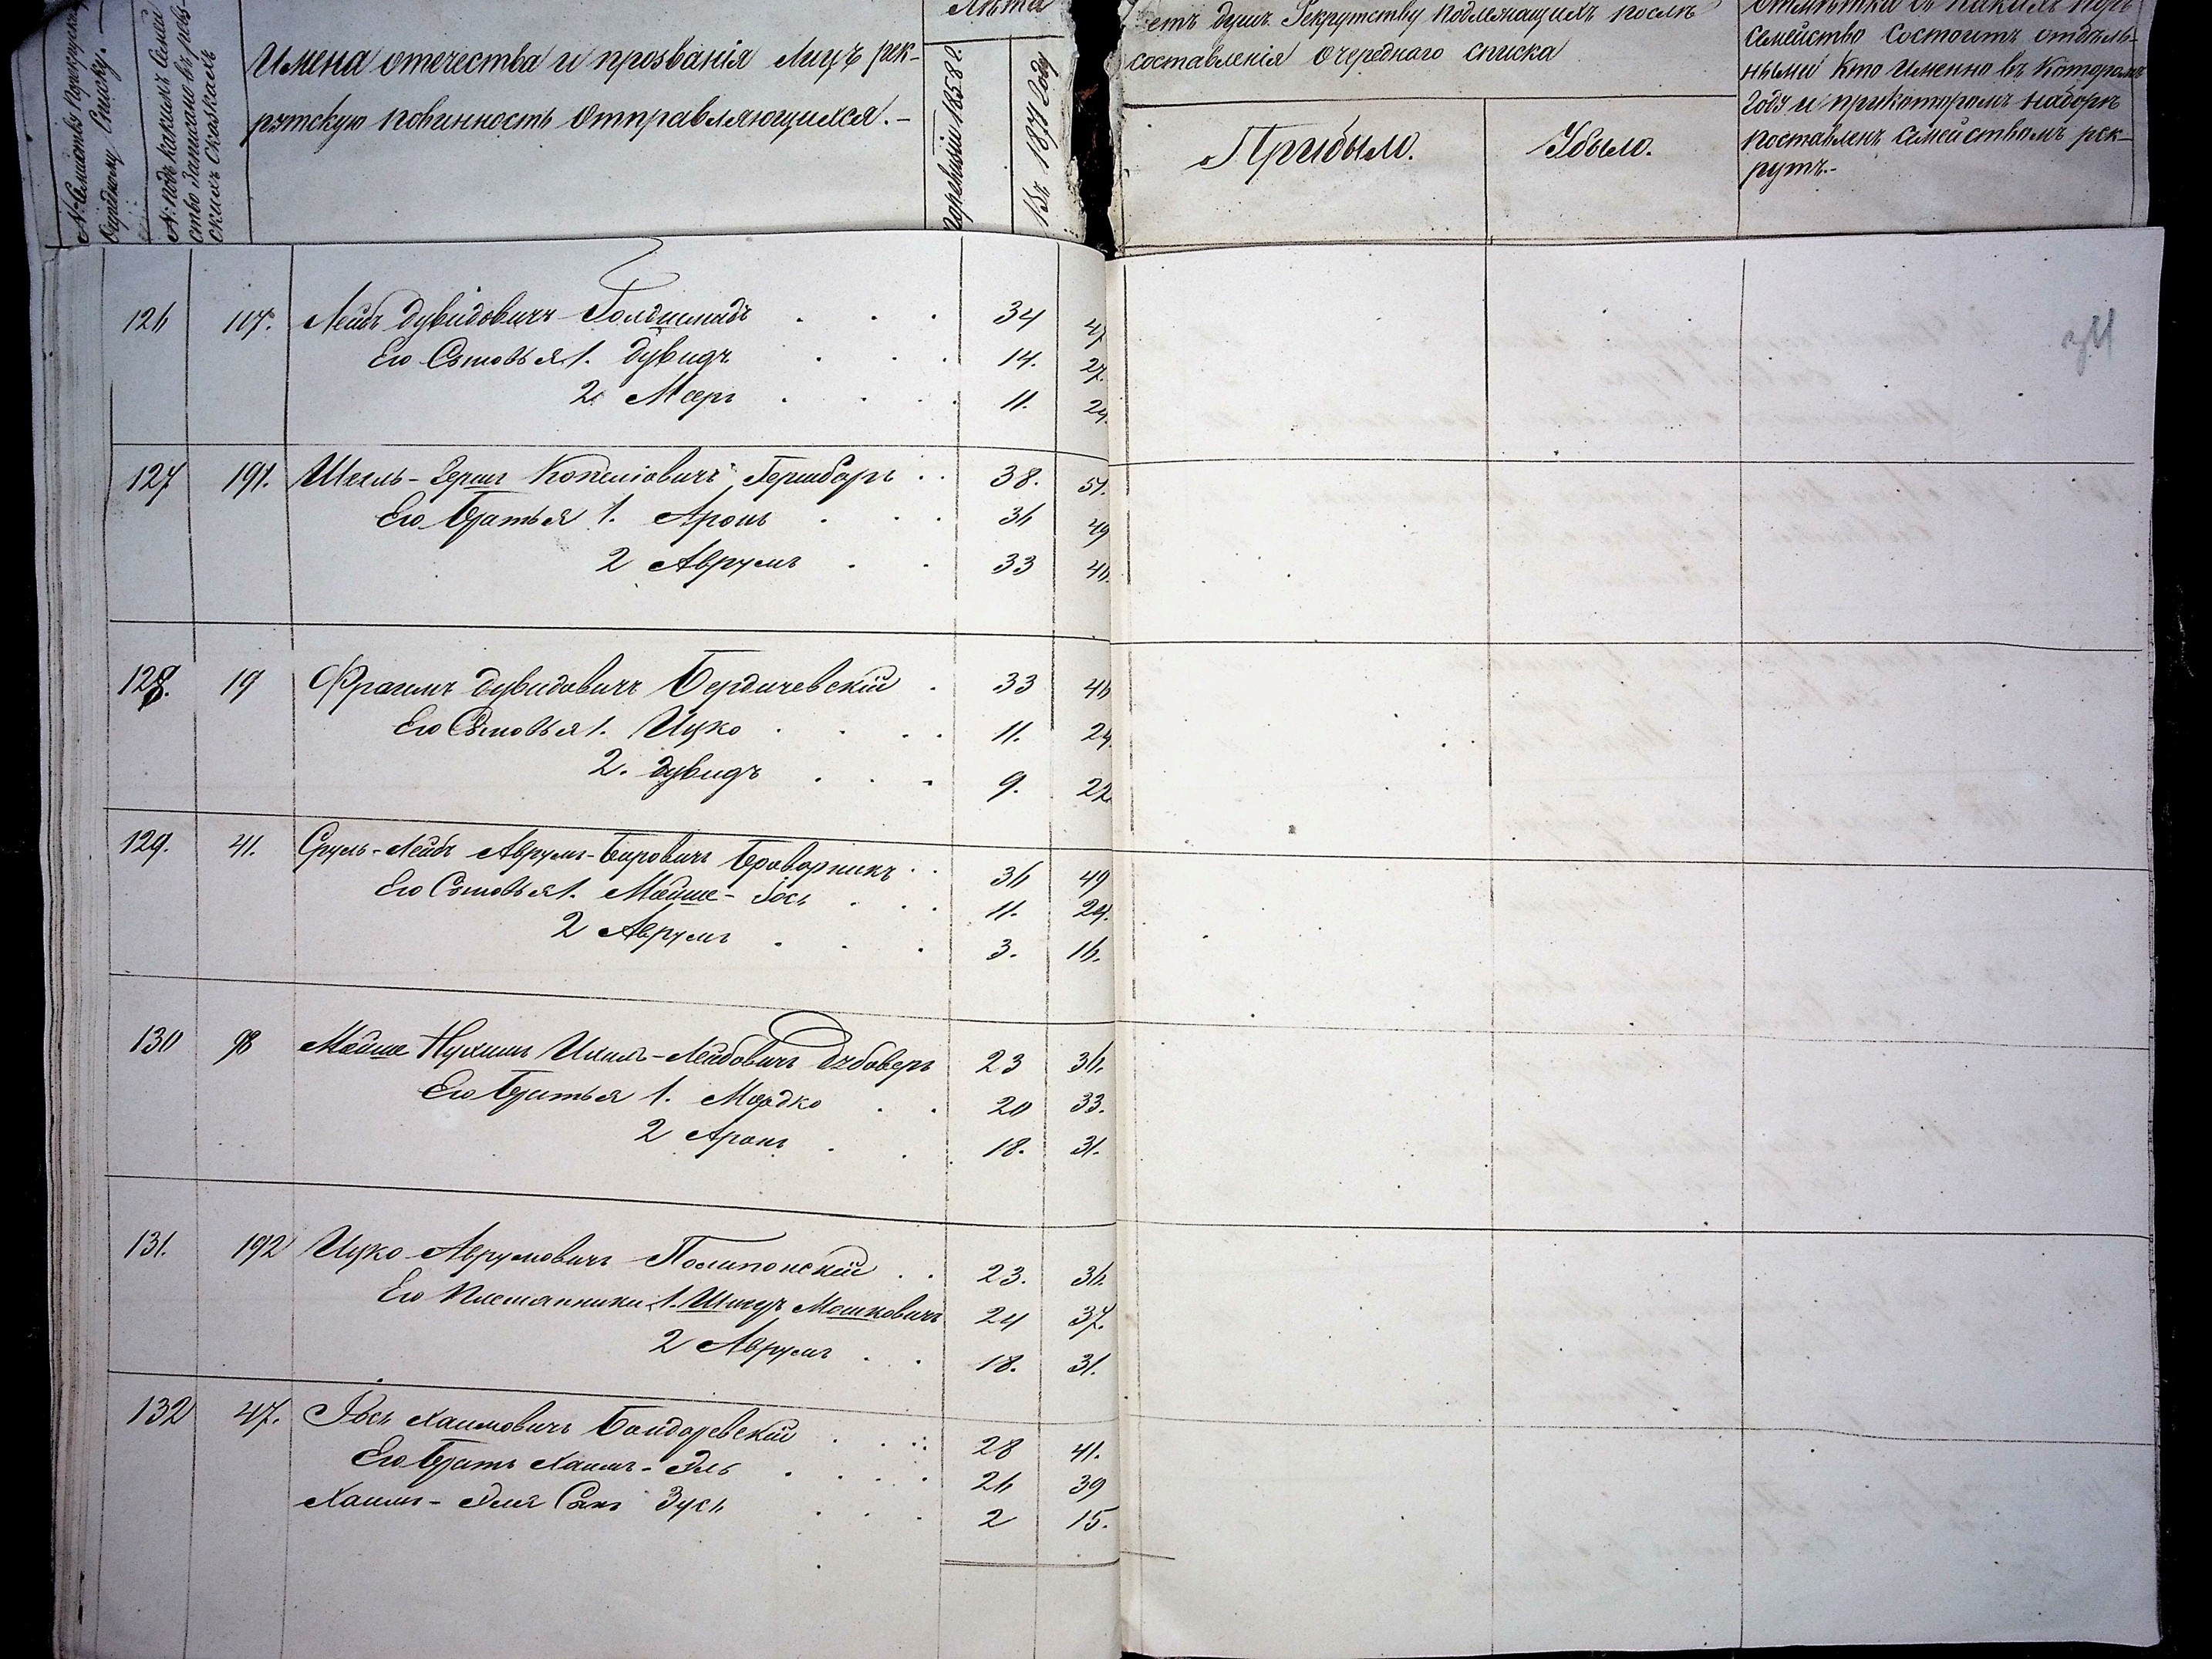 Лѣта
№ Семейства
Очередному Списку.
№ подъ какимъ
ство записано въ реви-
скихъ Сказкахъ
Имена отечества и прозванія Лицъ рек-
рутскую повинность отправляющихся.-
По ревизіи 1858 г.
Въ 1871 Году
етъ душъ Рекрутству подлежащихъ послѣ
составленія Очереднаго списка
Прибыло.
Убыло.
семейство состоитъ отдѣль-
ными кто именно въ которомъ
Году и прикоторомъ наборѣ
поставленъ семействомъ рек-
рутъ.-
126 107. Лейбъ Дувидовичъ Голдшмидъ . . . 34 47
Его Сыновья 1. Дувидъ . . . 14. 27.
2. Мееръ . . . 11. 24.
127 191. Ихель-Герш Копелiовичъ Гершбаръ . . 38. 51.
Его Братья 1. Аронъ . . . 36 49
2 Аврумъ . . 33 46.
128. 19 Фраимъ Дувидовичъ Бердичевскiй . 33 46
Его Сыновья 1. Ицко . . . . 11. 24.
2. Дувидъ . . . 9. 22.
129. 41. Сруль-Лейбъ Аврумъ-Беровичъ Броварникъ . . 36 49
Его Сыновья 1. Мойше-Iось . . . 11. 24.
2 Аврумъ . . . 3. 16.
130 98 Мойше Нухимъ Ихиль-Лейбовичъ 23 36.
Его Братья 1. Мордко . . 20 33.
2 Аронъ . . . 18. 31.
131. 192 Ицко Аврумовичъ Полипонскiй . . 23. 36
Его Племянники 1. Мошковичъ 24 37.
2 Аврумъ . . 18. 31.
132 47. Iось Хаимовичъ Бондаревскiй . . . 28 41.
Его Братъ Хаимъ-Эль . . . . 26 39
Хаимъ-Эля Сынъ Зусь . . . 2 15.